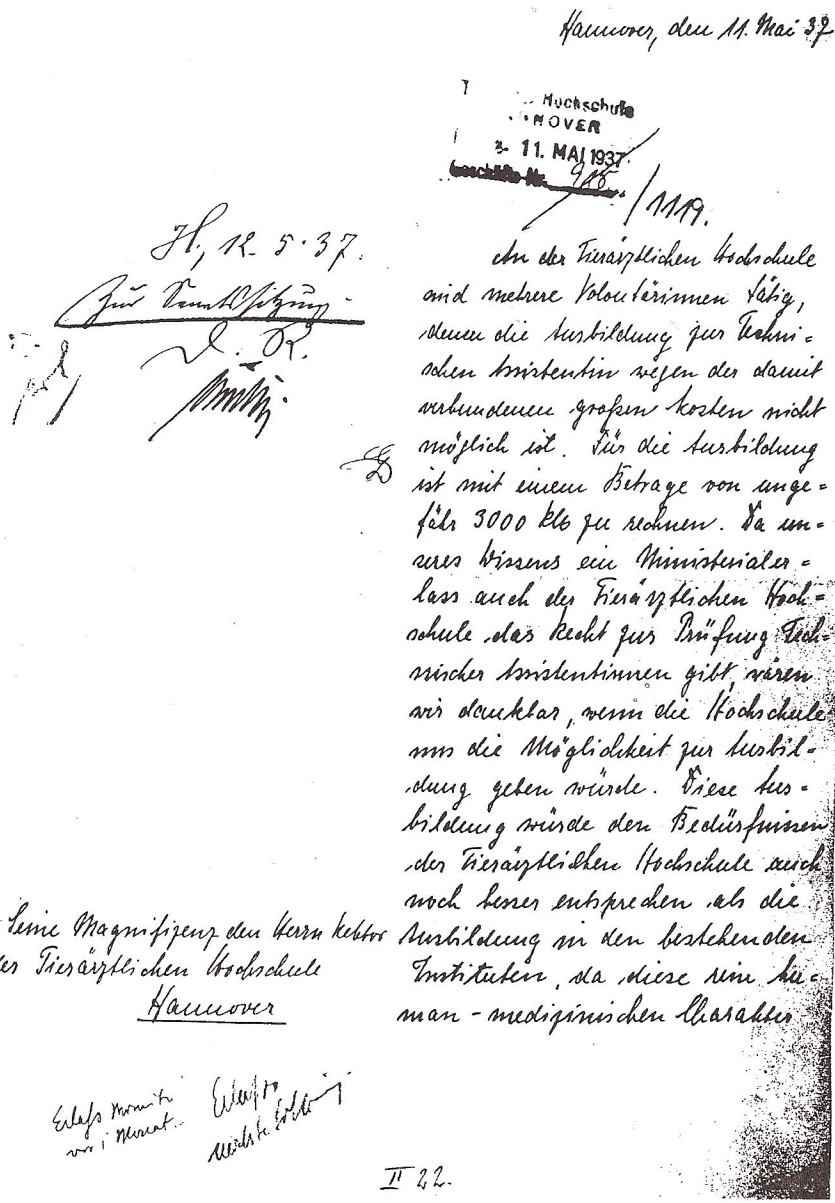 Hannover, den 11. Mai 37
Hochschule
NOVER
11. MAI 1937
Geschäfts-Nr. 925
/1119.
H., 12. 5. 37.
Zur Senatssitzung.
D. R.
An der Tierärztlichen Hochschule
sind mehrere Volontärinnen tätig,
denen die Ausbildung zur Techni=
schen Assistentin wegen der damit
verbundenen großen Kosten nicht
möglich ist. Für die Ausbildung
ist mit einem Betrage von unge=
fähr 3000 RM zu rechnen. Da un=
seres Wissens ein Ministerialer=
lass auch der Tierärztlichen Hoch=
schule das Recht zur Prüfung Tech=
nischer Assistentinnen gibt, wären
wir dankbar, wenn die Hochschule
uns die Möglichkeit zur Ausbil=
dung geben würde. Diese Aus=
bildung würde den Bedürfnissen
der Tierärztlichen Hochschule auch
noch besser entsprechen als die
Ausbildung in den bestehenden
Instituten, da diese rein hu=
man-medizinischen Charakter
Seine Magnifizenz den Herrn Rektor
der Tierärztlichen Hochschule
Hannover
Erlaß
vor 1 Monat.
II 22.